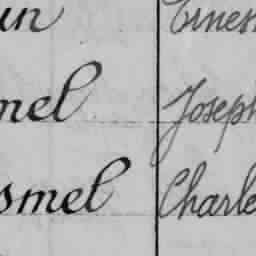 un Ernes
nel Joseph
smel Charle